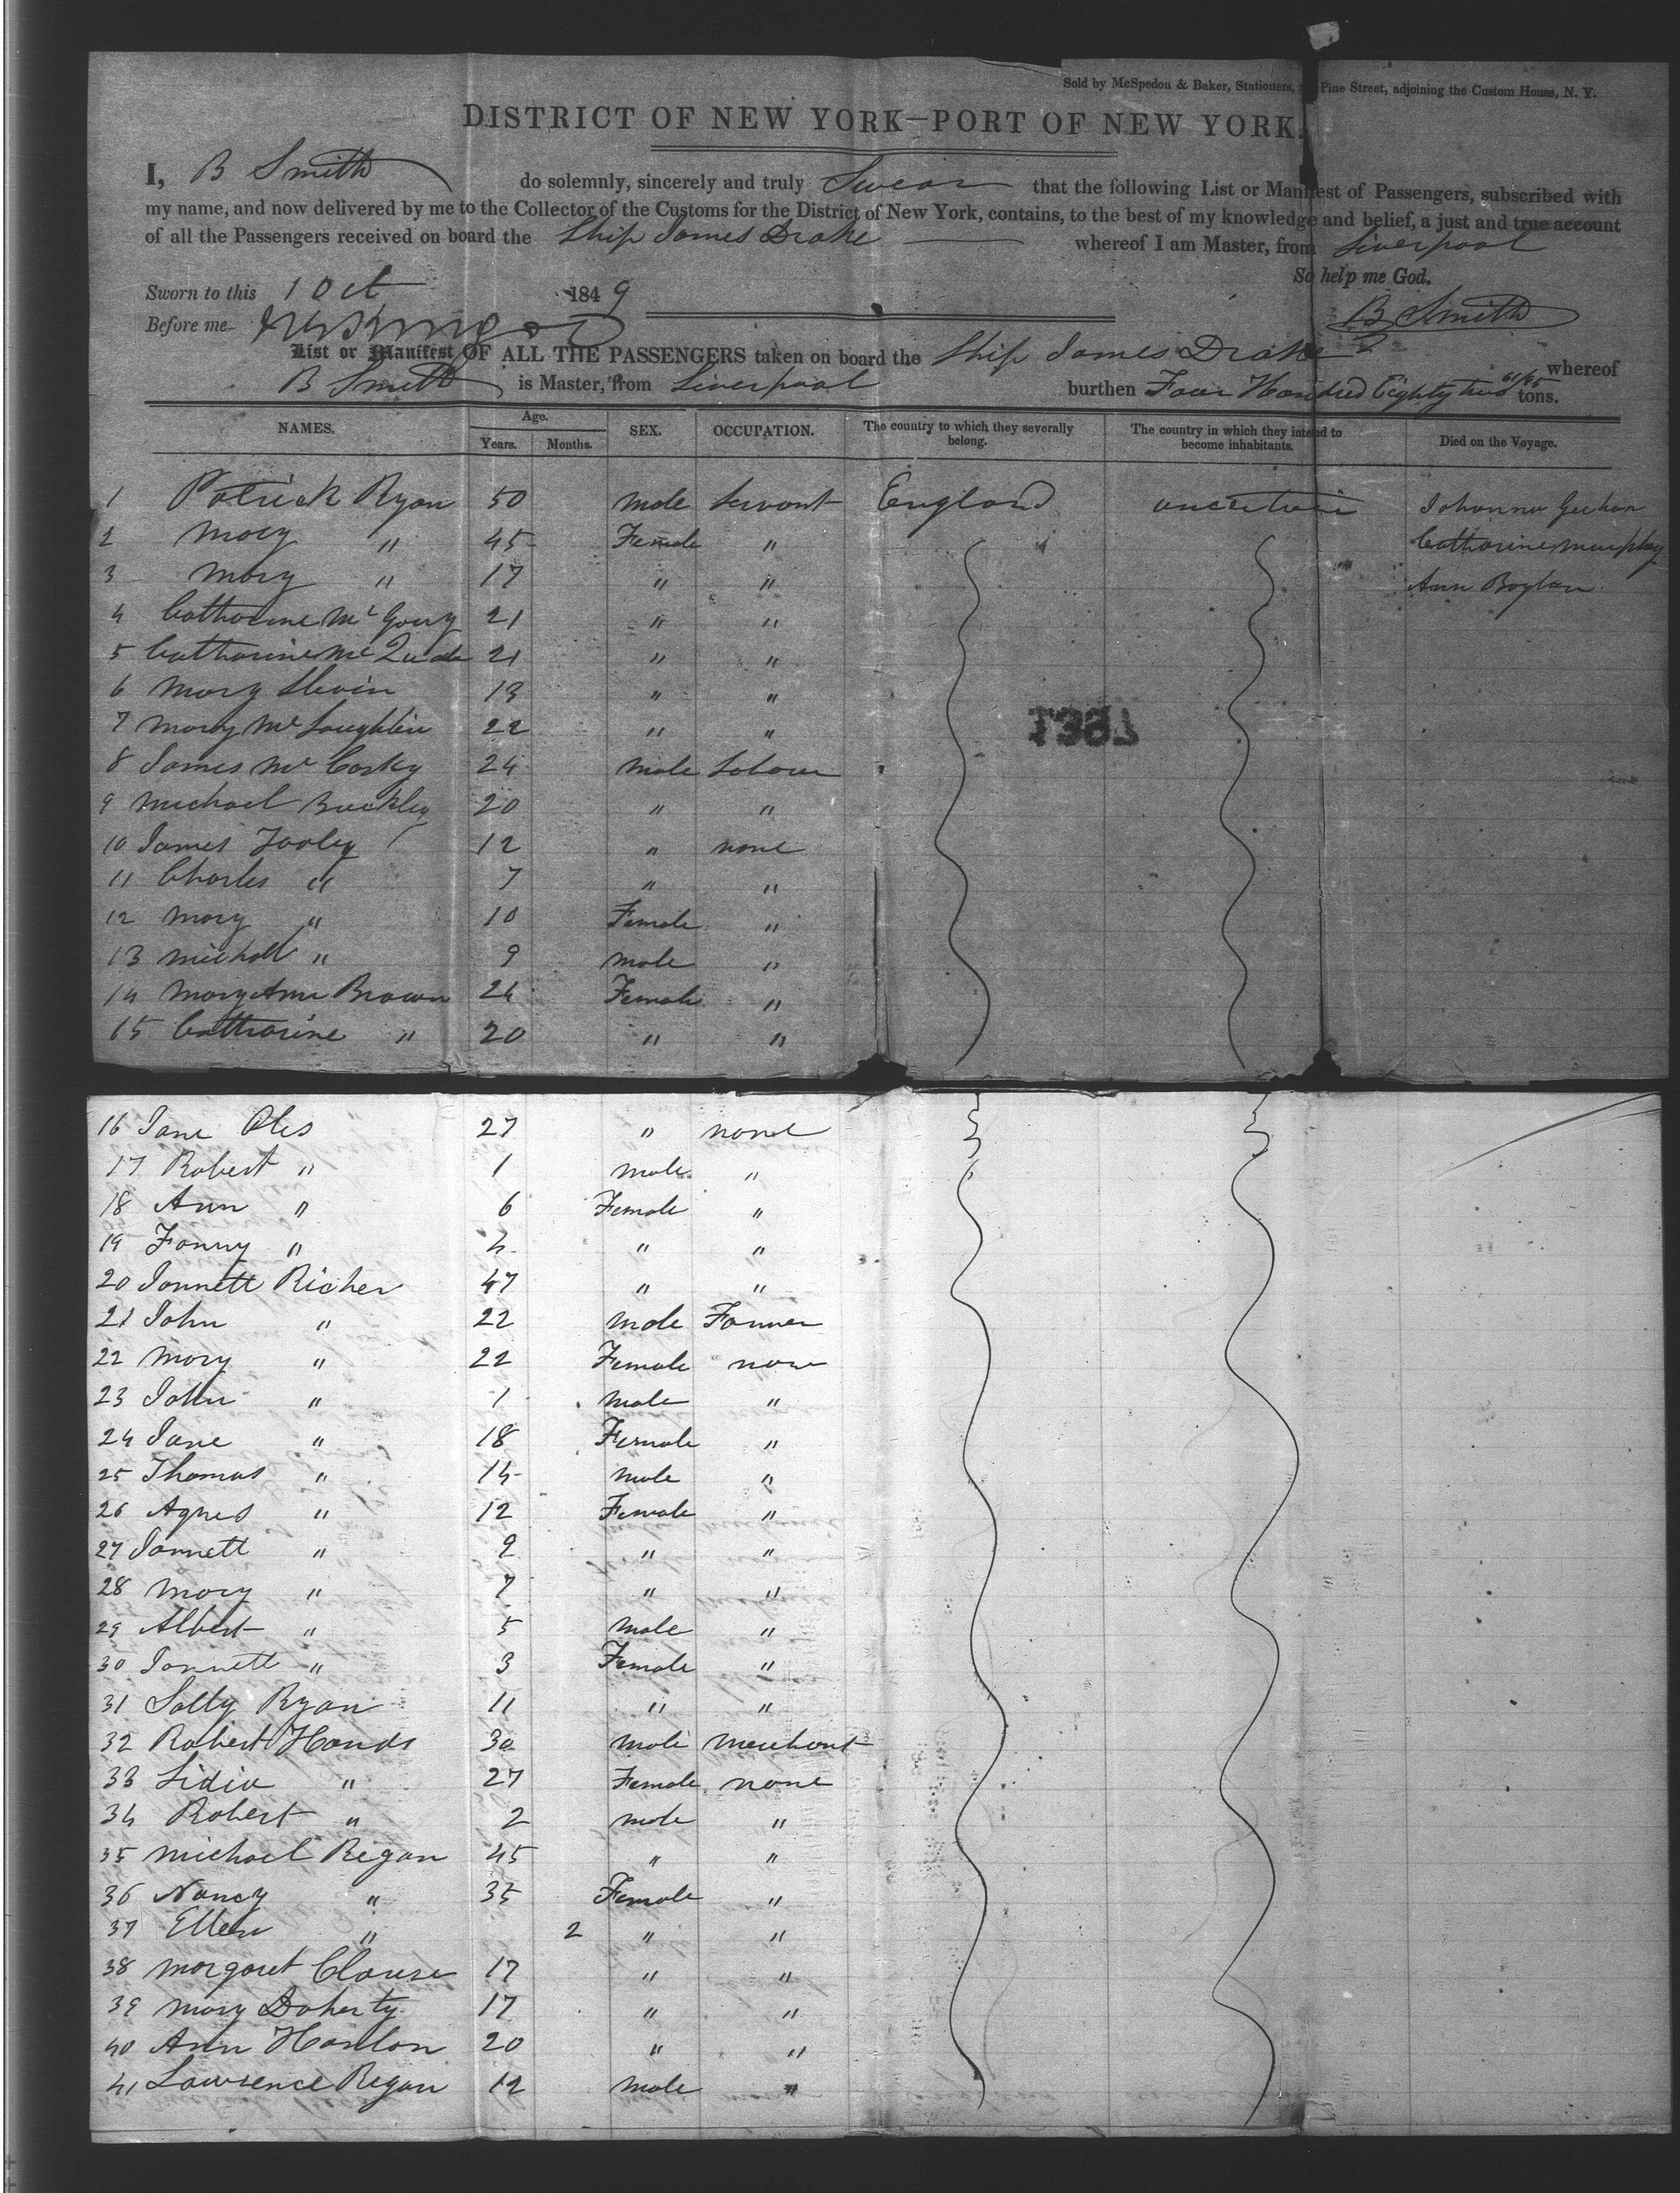 Sold by McSpedon & Baker, Stationers, Pine Street, adjoining the Custom House, N. Y.
DISTRICT OF NEW YORK—PORT OF NEW YORK.
I, B Smith do solemnly, sincerely and truly Swear that the following List or Manifest of Passengers, subscribed with
my name, and now delivered by me to the Collector of the Customs for the District of New York, contains, to the best of my knowledge and belief, a just and true account
of all the Passengers received on board the Ship James Drake whereof I am Master, from Liverpool
So help me God.
Sworn to this 1 Oct 1849
Before me B Smith
List or Manifest OF ALL THE PASSENGERS taken on board the Ship James Drake whereof
B Smith is Master, from Liverpool burthen Four Hundred Eighty two 61/95 tons.
NAMES. Age. Years. Months. SEX. OCCUPATION. The country to which they severally belong. The country in which they intend to become inhabitants. Died on the Voyage.
1 Patrick Ryan 50 male Servant England uncertain Johanna
2 Mary " 45 Female " Catharine Murphy
3 Mary " 17 " " Ann Boylan
4 Catharine Mc 21 " "
5 Catharine Mc Quade 21 " "
6 Mary Slevin 13 " "
7 Mary Mc Loughlin 22 " "
8 James Mc Cosky 24 male Labour
9 Michael Buckley 20 " "
10 James Fooley 12 " none
11 Charles " 7 " "
12 Mary " 10 Female "
13 Michall " 9 male "
14 Mary Ann Brown 24 Female "
15 Catharine " 20 " "
1387
16 Jane Oles 27 " none
17 Robert " 1 male "
18 Ann " 6 Female "
19 Fanny " " "
20 Jannett Richer 47 " "
21 John " 22 male Farmer
22 Mary " 22 Female none
23 John " 1 male "
24 Jane " 18 Female "
25 Thomas " 14 male "
26 Agnes " 12 Female "
27 Jannett " 9 " "
28 Mary " 7 " "
29 Albert " 5 male "
30 Jannett " 3 Female "
31 Sally Ryan 11 " "
32 Robert Hands 30 male Merchant
33 Lidia " 27 Female none
34 Robert " 2 male "
35 Michael Regan 45 " "
36 Nancy " 35 Female "
37 Ellen " 2 " "
38 Margaret Clause 17 " "
39 Mary Doherty 17 " "
40 Ann Hanlon 20 " "
41 Lawrence Regan 12 male "